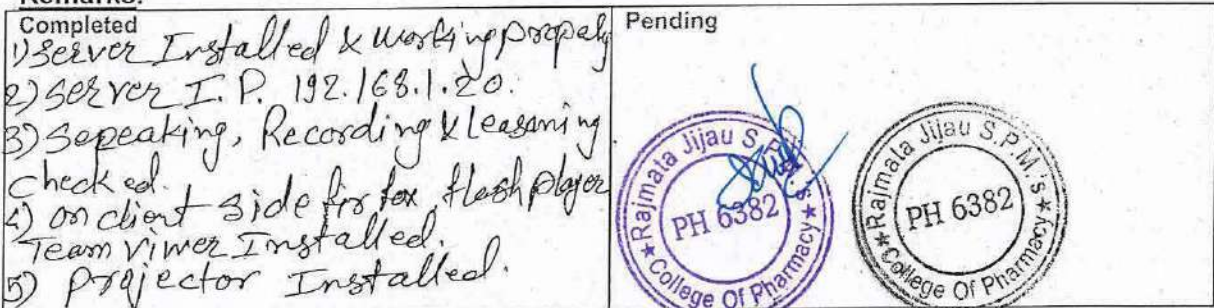 Remarks:
Completed
1) Server Installed & working propely
2) Server I. P. 192.168.1.20.
3) Sepeaking, Recording & Leasaning
checked.
4) on client side firfox, flash player
Team Vimer Installed.
5) Projector Installed.
Pending
★ Rajmata Jijau S.P.M.'s ★
PH 6382
College Of Pharmacy
★ Rajmata Jijau S.P.M.'s ★
PH 6382
College Of Pharmacy